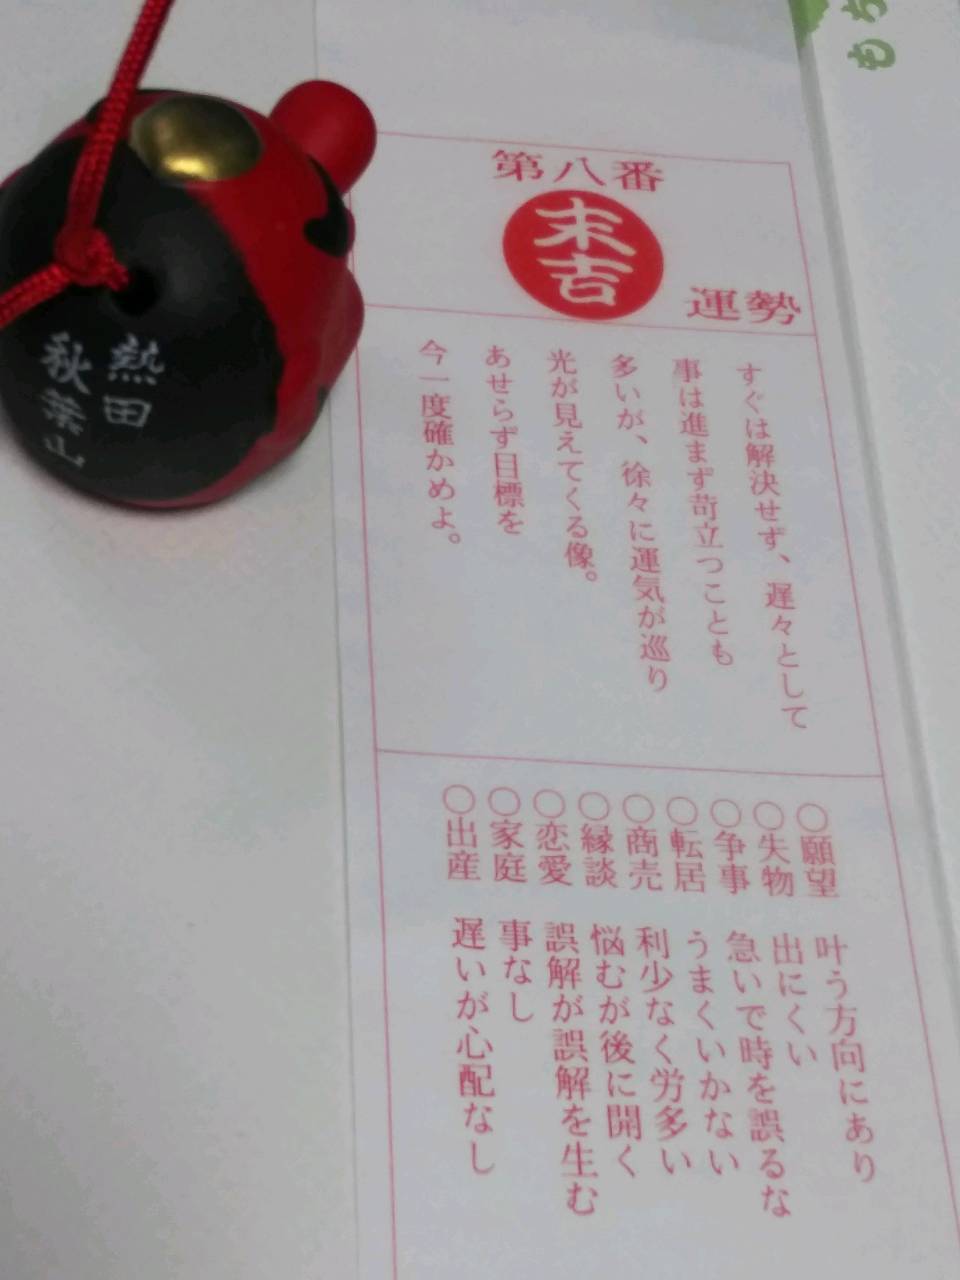 もち
も
第八番
末吉
運勢
すぐは解決せず、遅々として
事は進まず苛立つことも
多いが、徐々に運気が巡り
光が見えてくる像。
あせらず目標を
今一度確かめよ。
○願望 叶う方向にあり
○失物 出にくい
○争事 急いで時を誤るな
○転居 うまくいかない
○商売 利少なく労多い
○縁談 悩むが後に開く
○恋愛 誤解が誤解を生む
○家庭 事なし
○出産 遅いが心配なし
熱田
秋葉山